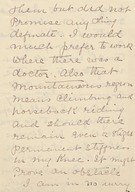 them but did not
promise anything
definate. I would
much prefer to work
where there was a
doctor. Also that
Mountaineous region
means climbing and
horseback riding
and should there
remain even a slight
permanent stiffness
in my knee. It might
prove an obstacle
I am in no way